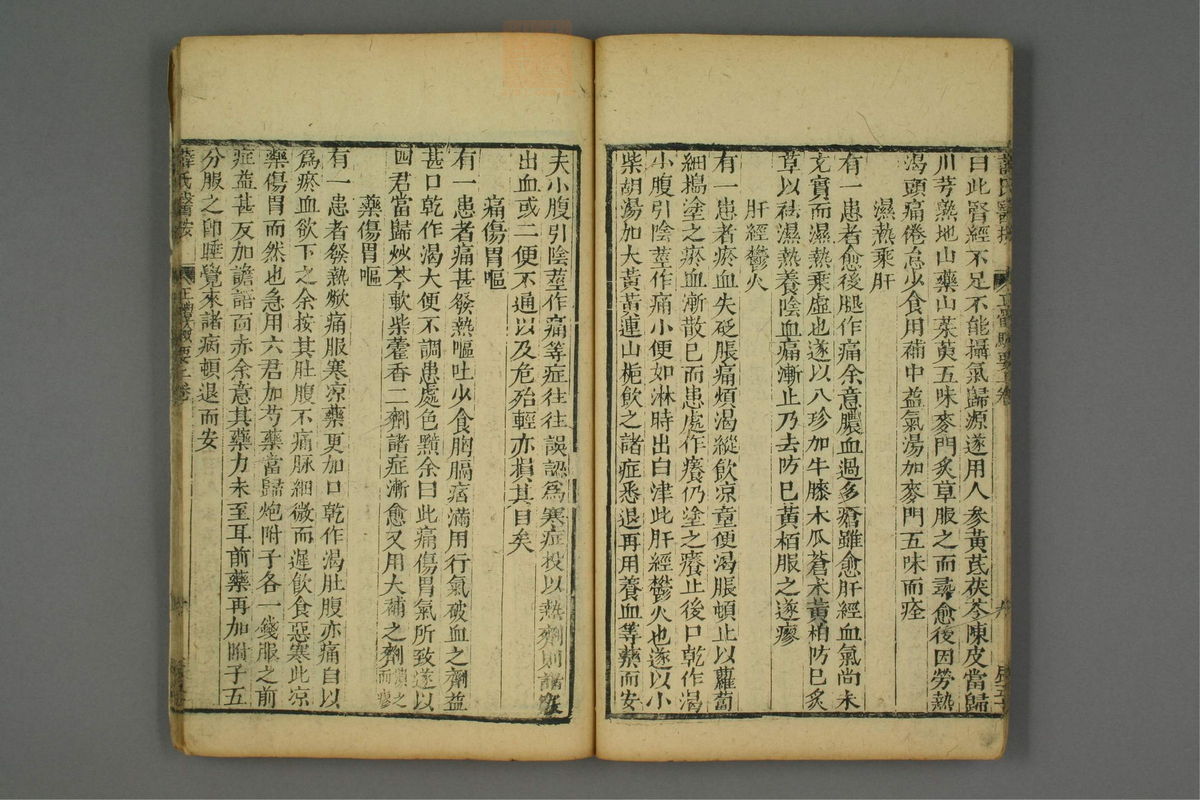 曰此腎經不足不能攝氣歸源遂用人參黃芪茯苓陳皮當歸
川芎熟地山藥山茱萸五味麥門炙草服之而尋愈後因勞熱
渴頭痛倦怠少食用補中益氣湯加麥門五味而痊
濕熱乘肝
有一患者愈後腿作痛余意膿血過多瘡雖愈肝經血氣尚未
充實而濕熱乘虛也遂以八珍加牛膝木瓜蒼朮黃柏防巳炙
草以祛濕熱養陰血痛漸止乃去防巳黃栢服之遂瘳
肝經鬱火
有一患者瘀血失砭脹痛煩渴縱飲凉童便渴脹頓止以蘿蔔
細搗塗之瘀血漸散已而患處作癢仍塗之癢止後口乾作渴
小腹引陰莖作痛小便如淋時出白津此肝經鬱火也遂以小
柴胡湯加大黃黃連山梔飲之諸症悉退再用養血等藥而安
夫小腹引陰莖作痛等症往往誤認爲寒症投以熱劑則諸竅
出血或二便不通以及危殆輕亦損其目矣
痛傷胃嘔
有一患者痛甚發熱嘔吐少食胸膈痞滿用行氣破血之劑益
甚口乾作渴大便不調患處色黯余曰此痛傷胃氣所致遂以
四君當歸炒芩軟柴藿香二劑諸症漸愈又用大補之劑潰之而瘳
藥傷胃嘔
有一患者發熱焮痛服寒凉藥更加口乾作渴肚腹亦痛自以
爲瘀血欲下之余按其肚腹不痛脉細微而遲飲食惡寒此凉
藥傷胃而然也急用六君加芍藥當歸炮附子各一錢服之前
症益甚反加譫語面赤余意其藥力未至耳前藥再加附子五
分服之卽睡覺來諸病頓退而安
薛氏醫按